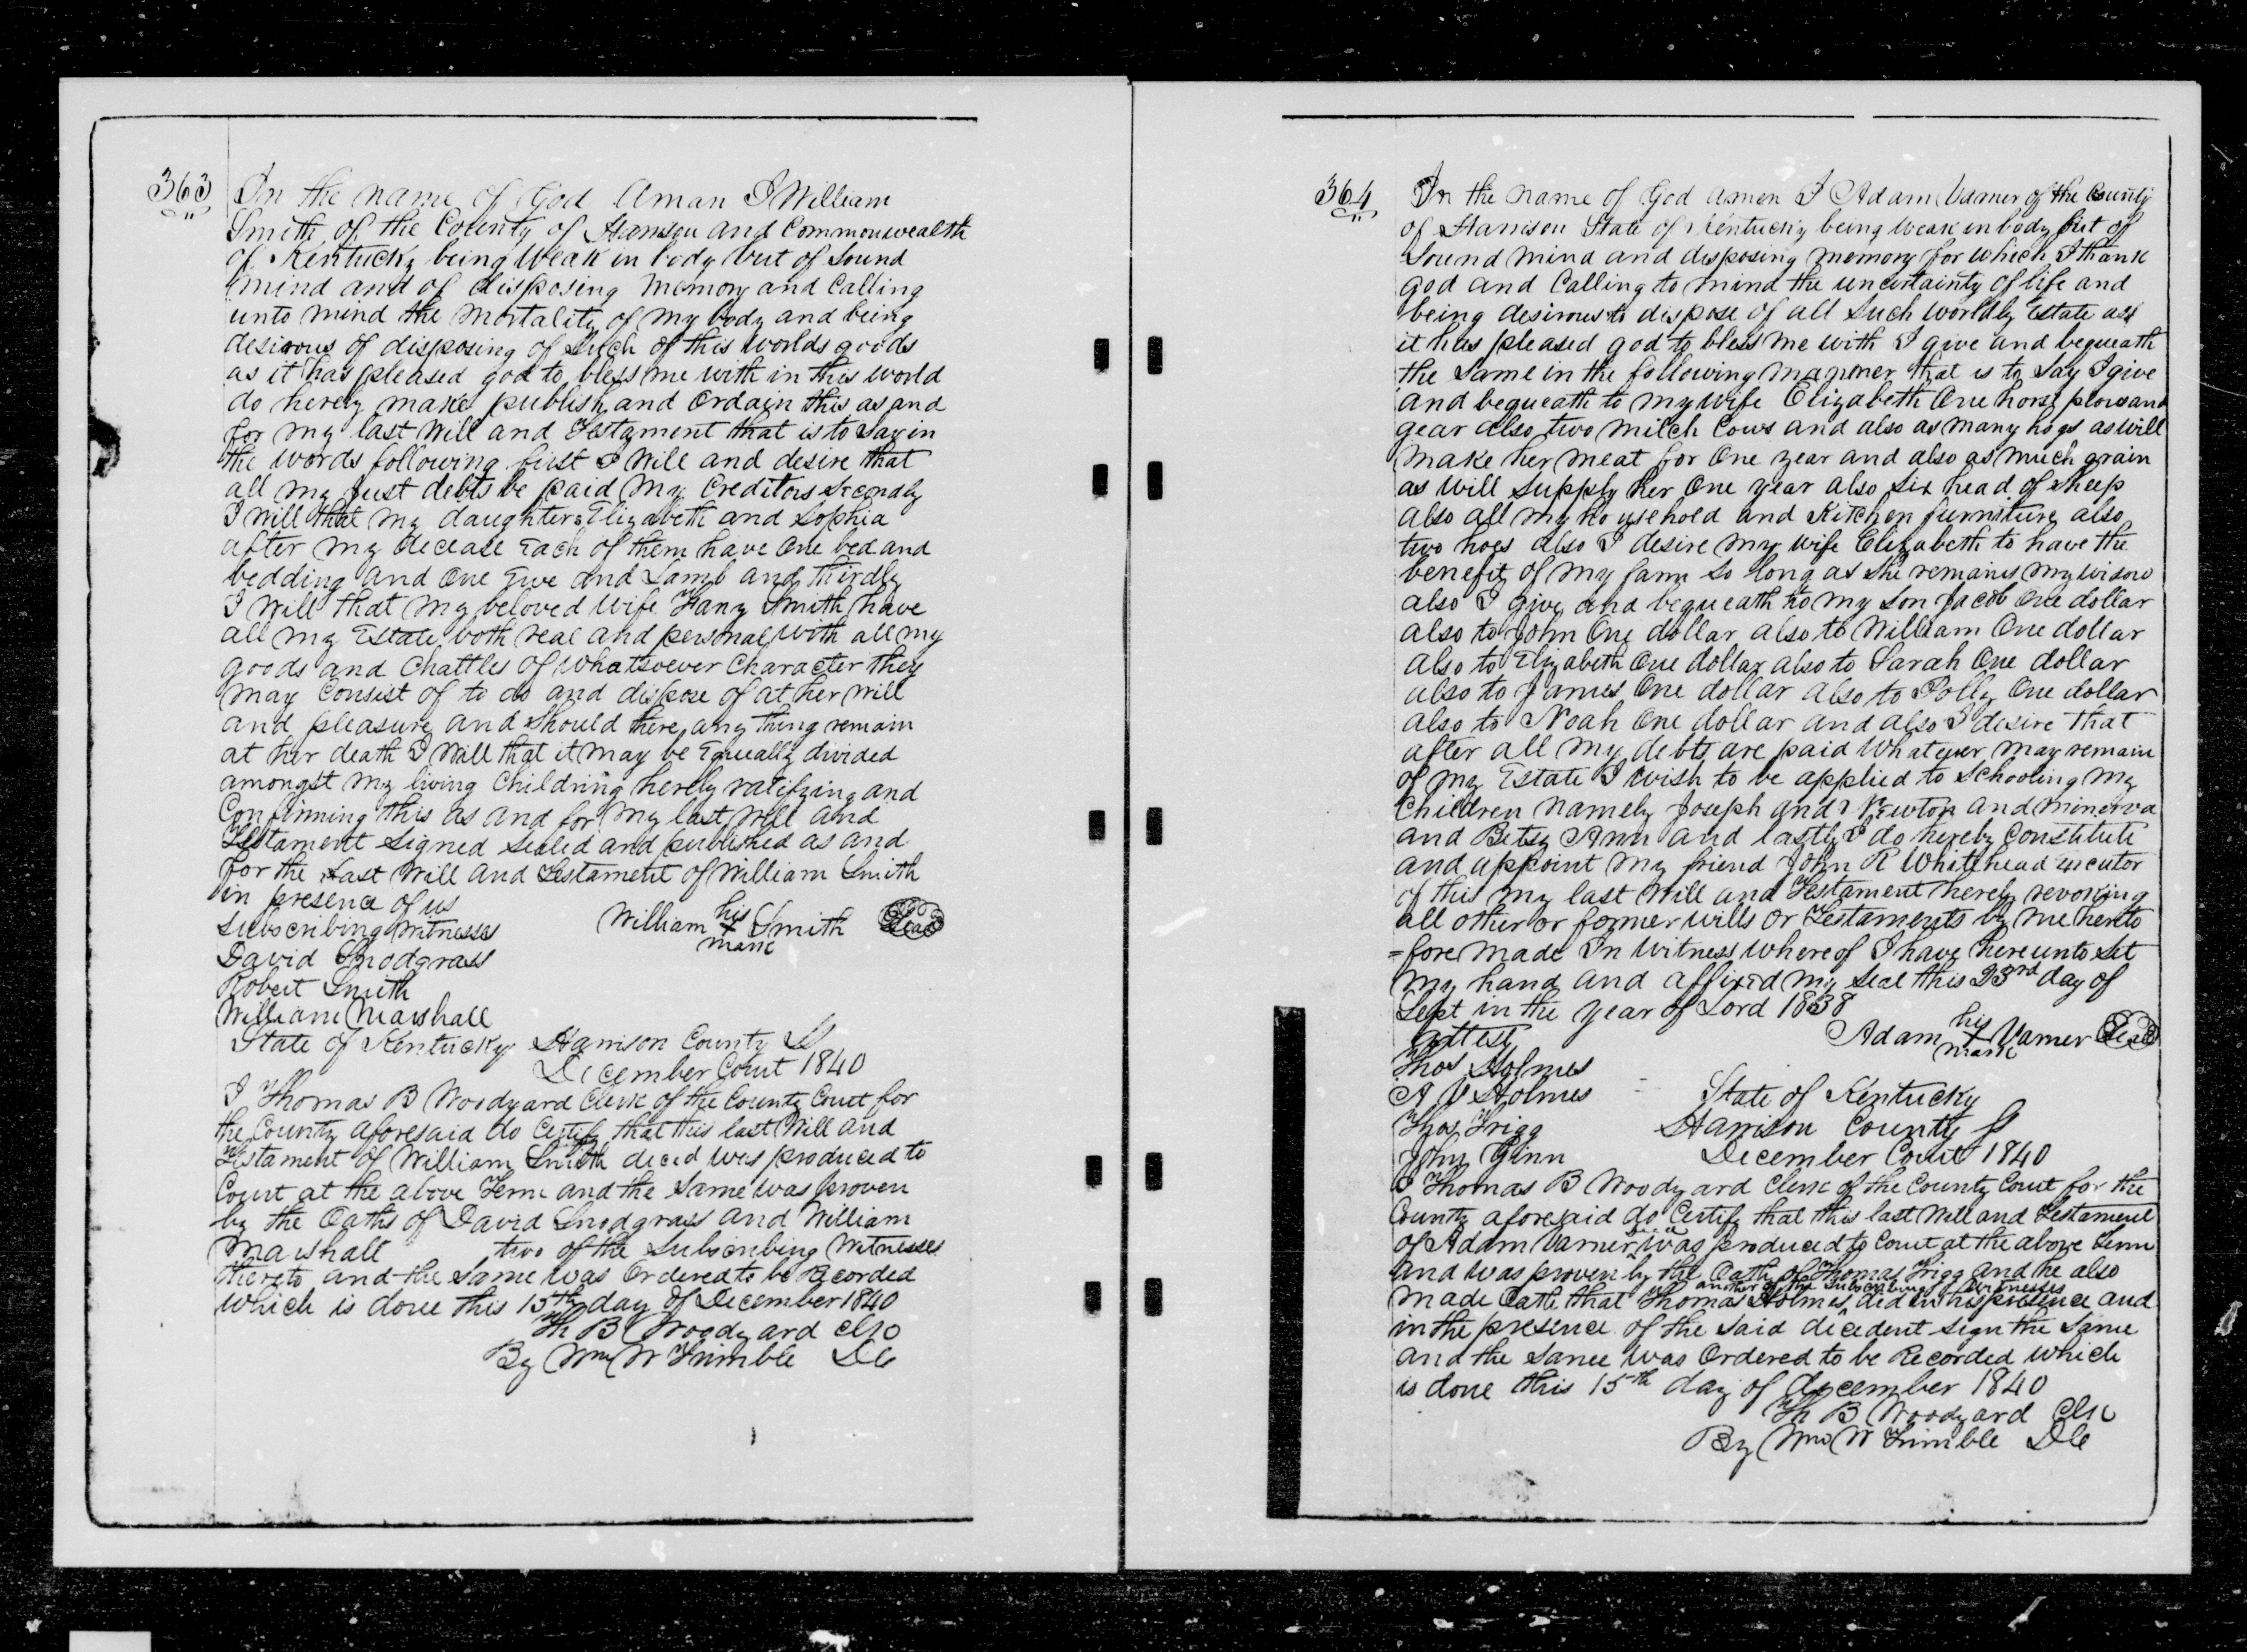 363 In the name of God Aman I William
Smith of the County of Harrison and Commonwealth
of Kentucky being Weak in body but of Sound
mind and of disposing Memory and Calling
unto mind the mortality of my body and being
desirous of disposing of such of this worlds goods
as it has pleased god to bless me with in this world
do hereby make publish and Ordain this as and
for my last Will and Testament that is to say in
the words following first I Will and desire that
all my Just debts be paid my Creditors Secondly
I Will that my daughters Elizabeth and Sophia
after my decease Each of them have One bed and
bedding and One Ewe and Lamb and thirdly
I Will that my beloved Wife Fany Smith have
all my Estate both real and personal with all my
goods and Chattles of Whatsoever Character they
may Consist of to do and dispose of at her will
and pleasure and Should there any thing remain
at her death I Will that it may be Equally divided
amongst my living Childring hereby ratifying and
Confirming this as and for my last Will and
Testament Signed Sealed and published as and
for the Last Will and Testament of William Smith
in presence of us
Subscribing Witnesses William his X mark Smith Seal
David Snodgrass
Robert Smith
William Marshall
State of Kentucky Harrison County S
December Court 1840
I Thomas B Woodyard Clerk of the County Court for
the County aforesaid do Certify that this last Will and
Testament of William Smith deced was produced to
Court at the above Term and the Same was proven
by the Oaths of David Snodgrass and William
Marshall two of the Subscribing Witnesses
thereto and the Same was Ordered to be Recorded
which is done this 15th day of December 1840
Th B Woodyard Clk
By Wm W Trimble DC
364 In the name of God amen I Adam Varner of the County
of Harrison State of Kentucky being weak in body but of
Sound mind and disposing memory for which I thank
god and Calling to mind the uncertainty of life and
being desirous to dispose of all Such worldly Estate as
it has pleased god to bless me with I give and bequeath
the Same in the following manner that is to Say I give
and bequeath to my wife Elizabeth One horse plow and
gear also two milch Cows and also as many hogs as will
make her meat for One year and also as much grain
as will Supply her One year also Six head of Sheep
also all my household and Kitchen furniture also
two hoes also I desire my wife Elizabeth to have the
benefit of my farm So long as She remains my widow
also I give and bequeath to my Son Jacob One dollar
also to John One dollar also to William One dollar
also to Elizabeth One dollar also to Sarah One dollar
also to James One dollar also to Polly One dollar
also to Noah One dollar and also I desire that
after all my debts are paid Whatever may remain
of my Estate I wish to be applied to Schooling my
Children namely Joseph and Newton and Minerva
and Betsy Ann and lastly I do hereby Constitute
and appoint my friend John R Whitehead Executor
of this my last Will and Testament hereby revoking
all other or former wills or Testaments by me hereto
=fore made In Witness Whereof I have hereunto Set
my hand and affixed my Seal this 23rd day of
Sept in the year of Lord 1838
attest Adam his X mark Varner Seal
Thos Holmes
A V Holmes State of Kentucky
Thos Trigg Harrison County S
John Ginn December Court 1840
I Thomas B Woodyard Clerk of the County Court for the
County aforesaid do Certify that this last Will and Testament
of Adam Varner deced was produced to Court at the above Term
and was proven by the Oath of Thomas Trigg and he also
made Oath that Thomas Holmes another of the Subscribing Witnesses did in his presence and
in the presence of the Said decedent Sign the Same
and the Same was Ordered to be Recorded which
is done this 15th day of december 1840
Th B Woodyard Clk
By Wm W Trimble DC